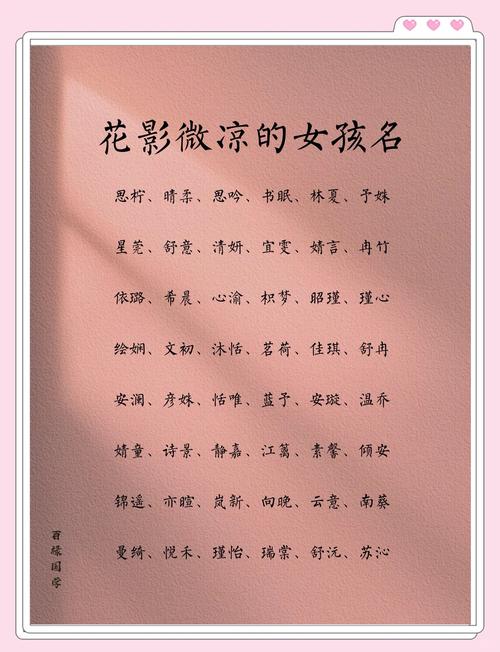 花影微凉的女孩名
思柠、晴柔、思吟、书眠、林夏、予姝
星莞、舒意、清妍、宜雯、婧言、冉竹
依璐、希晨、心渝、枳梦、昭瑾、瑾心
绘娴、文初、沐恬、茗荷、佳琪、舒冉
安澜、彦姝、恬唯、蓝予、安璇、温乔
婧童、诗景、静嘉、江篱、素馨、倾安
锦遥、亦暄、岚新、向晚、云意、南葵
曼绮、悦禾、瑾怡、瑞棠、舒沅、苏沁
百缘国学